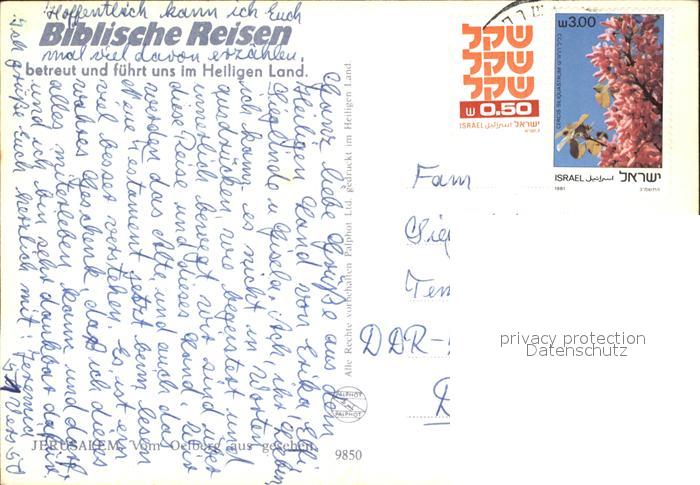 Hoffentlich kann ich Euch
Biblische Reisen
mal viel davon erzählen.
betreut und führt uns im Heiligen Land.
Ganz liebe Grüße aus dem
Heiligen Land von Erika, Elfi
Sieglinde u. Gisela. Ach, ihr Lieben,
ich kann es nicht in Worten
ausdrücken, wie begeistert und
innerlich bewegt wir sind über
diese Reise und dieses Land, hier
werden das Alte und auch das
Neue Testament jetzt beim lesen
viel besser verstehen. Es ist ein
wahres Geschenk, daß ich dieses
alles miterleben kann und darf
und ich bin sehr dankbar dafür.
Ich grüße Euch herzlich mit: Jeremia
51 Vers 50
JERUSALEM, Vom Oelberg aus gesehen
9850
Alle Rechte vorbehalten Palphot Ltd. gedruckt im Heiligen Land.
PALPHOT
שקל
שקל
שקל
ש 0.50
ISRAEL اسرائيل ישראל
ש 3.00
CERCIS SILIQUASTRUM
ISRAEL اسرائيل ישראל
1981
Fam
DDR-
privacy protection
Datenschutz